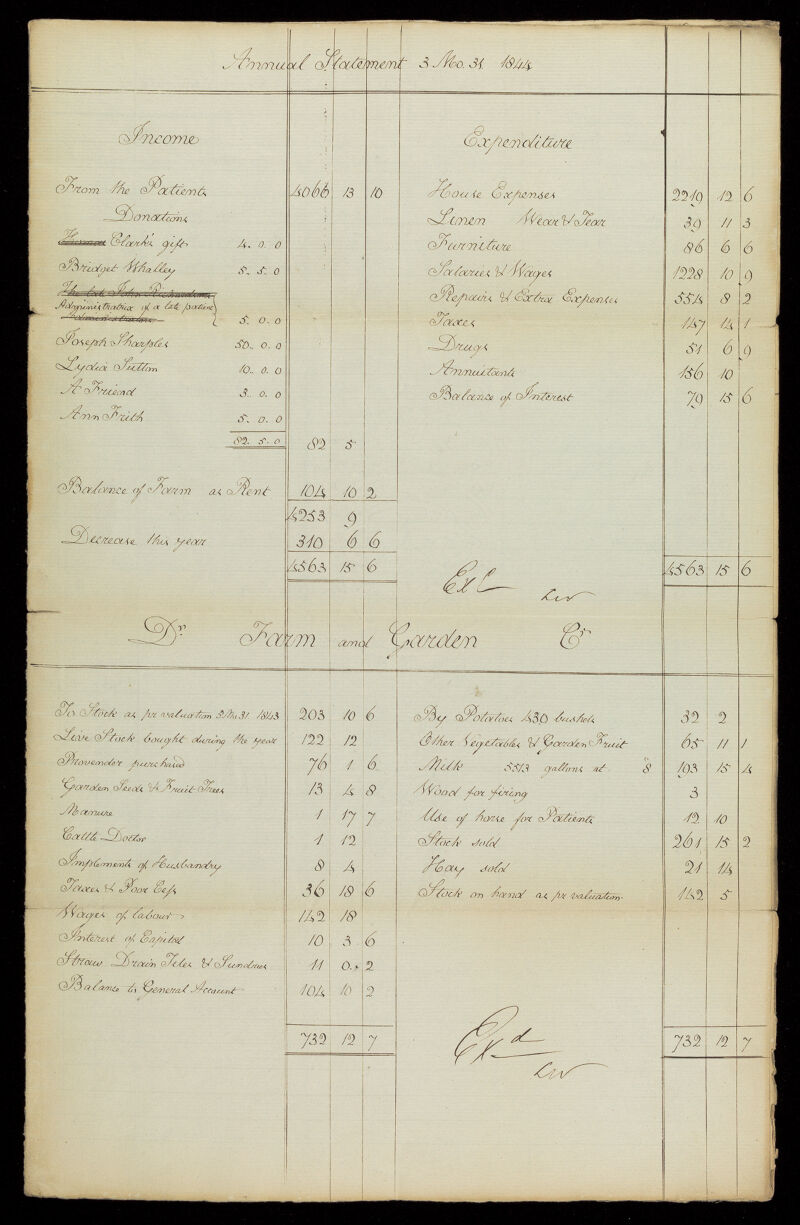 Annual Statement 3 Mo. 31. 1844
Income
From the Patients 4066 13 10
Donations
Clark's gift 4. 0. 0
Bridget Whalley 5. 5. 0
The late John Richardson
Administratrix of a late patient
Administrators 5. 0. 0
Joseph Sharples 50. 0. 0
Lydia Sutton 10. 0. 0
A Friend 3. 0. 0
Ann Frith 5. 0. 0
82. 5. 0 82 5
Balance of Farm as Rent 104 10 2
4253 9
Decrease this year 310 6 6
4563 15 6
Expenditure
House Expenses 2219 12 6
Linen Wear & Tear 39 11 3
Furniture 86 6 6
Salaries & Wages 1228 10 9
Repairs & Extra Expenses 554 8 2
Taxes 147 14 1
Drugs 51 6 9
Annuitants 156 10
Balance of Interest 79 15 6
4563 15 6
Exd
Dr. Farm and Garden Cr
To Stock as pr valuation 3 Mo. 31. 1843 203 10 6
Live Stock bought during the year 122 12
Provender purchased 76 1 6
Garden Seeds & Fruit Trees 13 4 8
Manure 1 17 7
Cattle Doctor 1 12
Implements of Husbandry 8 4
Taxes & Poor Cess 36 18 6
Wages of labour 142 18
Interest of Capital 10 3 6
Straw Drain Tiles & Sundries 11 0. 2
Balance to General Account 104 10 2
732 12 7
By Potatoes 430 bushels 32 2
Other Vegetables & Garden Fruit 65 11 1
Milk 5513 gallons at "8 193 15 4
Wood for firing 3
Use of horse for Patients 12 10
Stock sold 261 15 2
Hay sold 21 14
Stock on hand as pr valuation 142 5
732 12 7
Exd